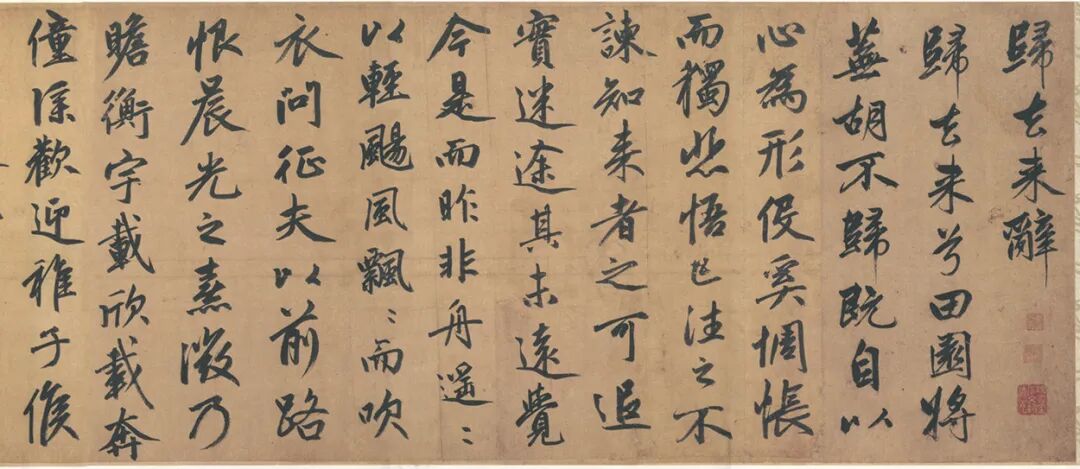 歸去来辭
歸去来兮田園將
蕪胡不歸既自以
心為形役奚惆悵
而獨悲悟已往之不
諫知来者之可追
實迷途其未遠覺
今是而昨非舟遥〻
以輕颺風飄〻而吹
衣問征夫以前路
恨晨光之熹微乃
瞻衡宇載欣載奔
僮僕歡迎稚子候